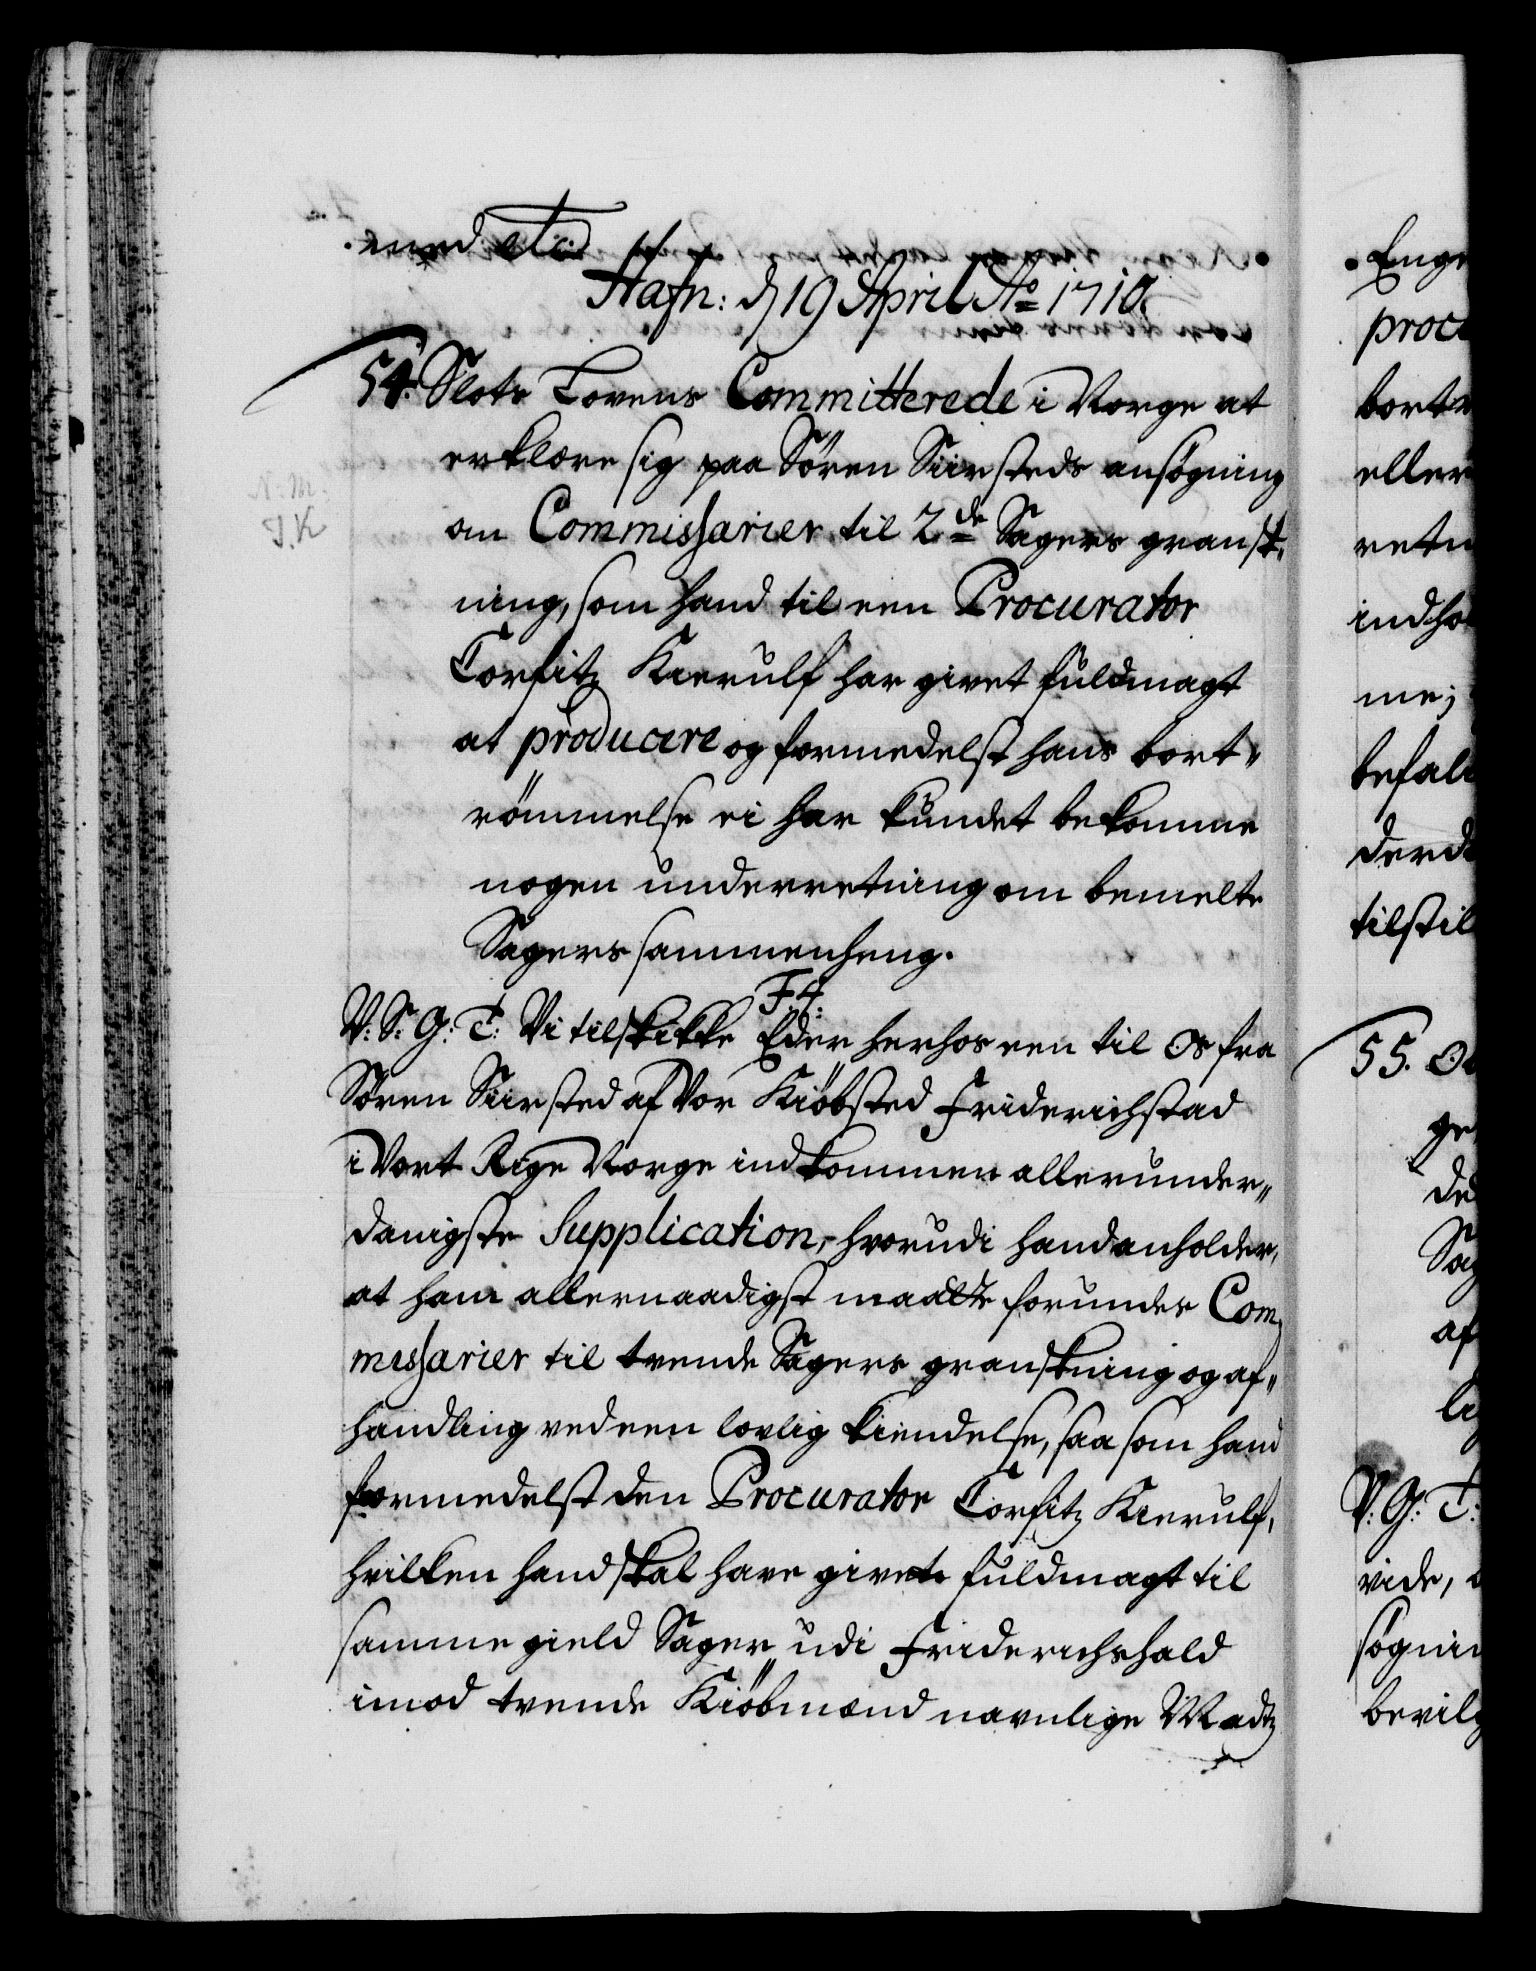 med etc:
Hafn: d 19 April Ao 1710.
54. Slots Lovens Committerede i Norge at
erklære sig paa Sören Siirsteds ansögning
om Commissarier til 2de Sagers gransk-
ning, som hand til een Procurator
Corfitz Kierulf har givet fuldmagt
at producere og formedelst hans bort-
römmelse ei har kundet bekomme
nogen underretning om bemelte
Sagers sammenheng.
F. 4.
V: S: G: T: Vi tilskikke Eder herhos een til Os fra
Sören Siirsted af Vor Kiöbsted Friderichstad
i Vort Rige Norge indkommen allerunder-
danigste Supplication, hvorudi hand anholder,
at ham allernaadigst maatte forundes Com-
missarier til tvende Sagers granskning og af-
handling ved een lovlig kiendelse, saasom hand
formedelst den Procurator Corfitz Kierulf,
hvilken hand skal have givet fuldmagt til
samme gield Sager udi Friderichshald
imod tvende Kiöbmænd navnlige Madtz
N. M.
J. K
Enge
proc
bort
eller
retn
indho
me;
befal
derd
tilstil
55.
ge
de
Sag
af
li
V: G: T:
vide,
sögnin
bevilg